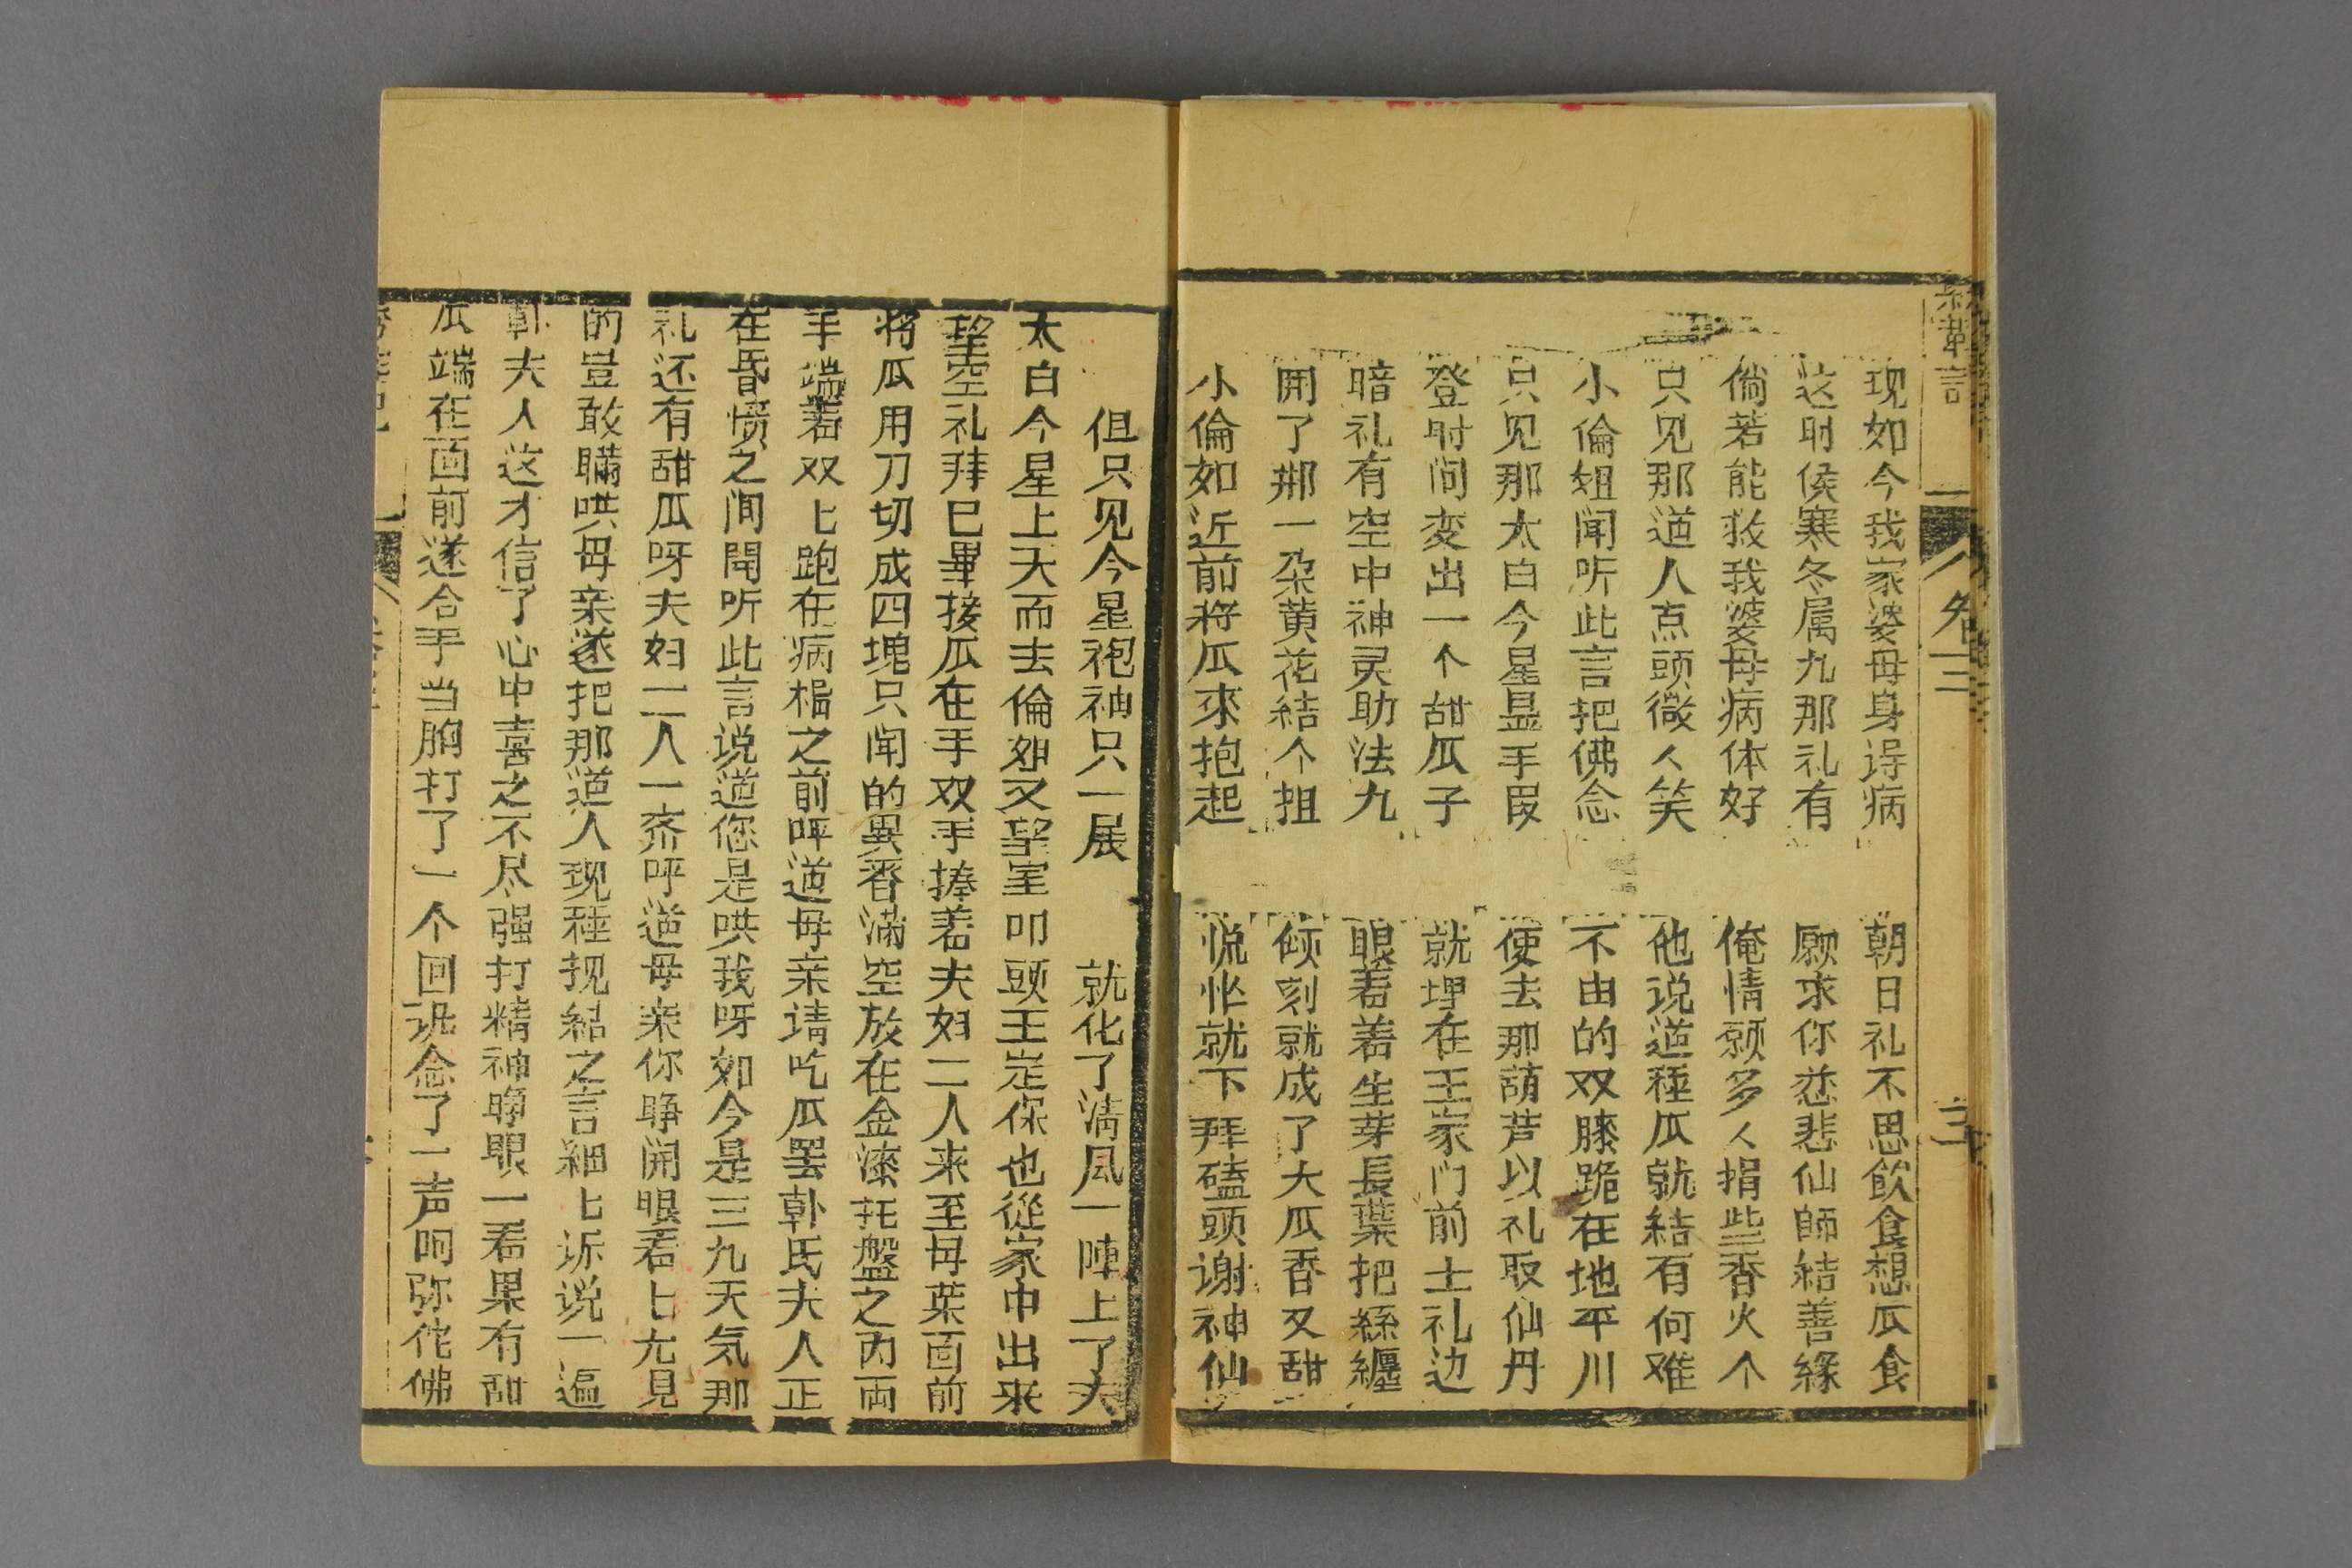 现如今我家婆母身得病　朝日礼不思飲食想瓜食
这时侯寒冬属九那礼有　愿求你慈悲仙師結善緣
倘若能救我婆母病体好　俺情愿多人捐些香火个
只见那道人点頭微人笑　他说道种瓜就結有何难
小倫姐闻听此言把佛念　不由的双膝跪在地平川
只见那太白今星显手段　使去那葫芦以礼取仙丹
登时间变出一个甜瓜子　就埋在王家门前士礼边
暗礼有空中神灵助法九　眼着着生芽長葉把絲纏
開了那一朵黄花結个扭　倾刻就成了大瓜香又甜
小倫如近前将瓜來抱起　悦忙就下拜磕头谢神仙
但只见今星袍袖只一展　就化了清风一陣上了天
太白今星上天而去倫如又望空叩头王定保也從家中出来
望空礼拜已畢接瓜在手双手捧着夫妇二人来至母亲面前
将瓜用刀切成四塊只闻的異香满空放在金漆托盤之内両
手端着双匕跑在病榻之前呼道母亲请吃瓜罢韩氏夫人正
在昏愦之间聞听此言说道您是哄我呀如今是三九天気那
礼还有甜瓜呀夫妇二人一齐呼道母亲你睁開眼看匕尢見
的豈敢瞒哄母亲遂把那道人现种现結之言細匕诉说一遍
韩夫人这才信了心中喜之不尽强打精神睁眼一看果有甜
瓜端在面前遂合手当胸打了一个回讯念了一声阿弥佗佛
卷三
三